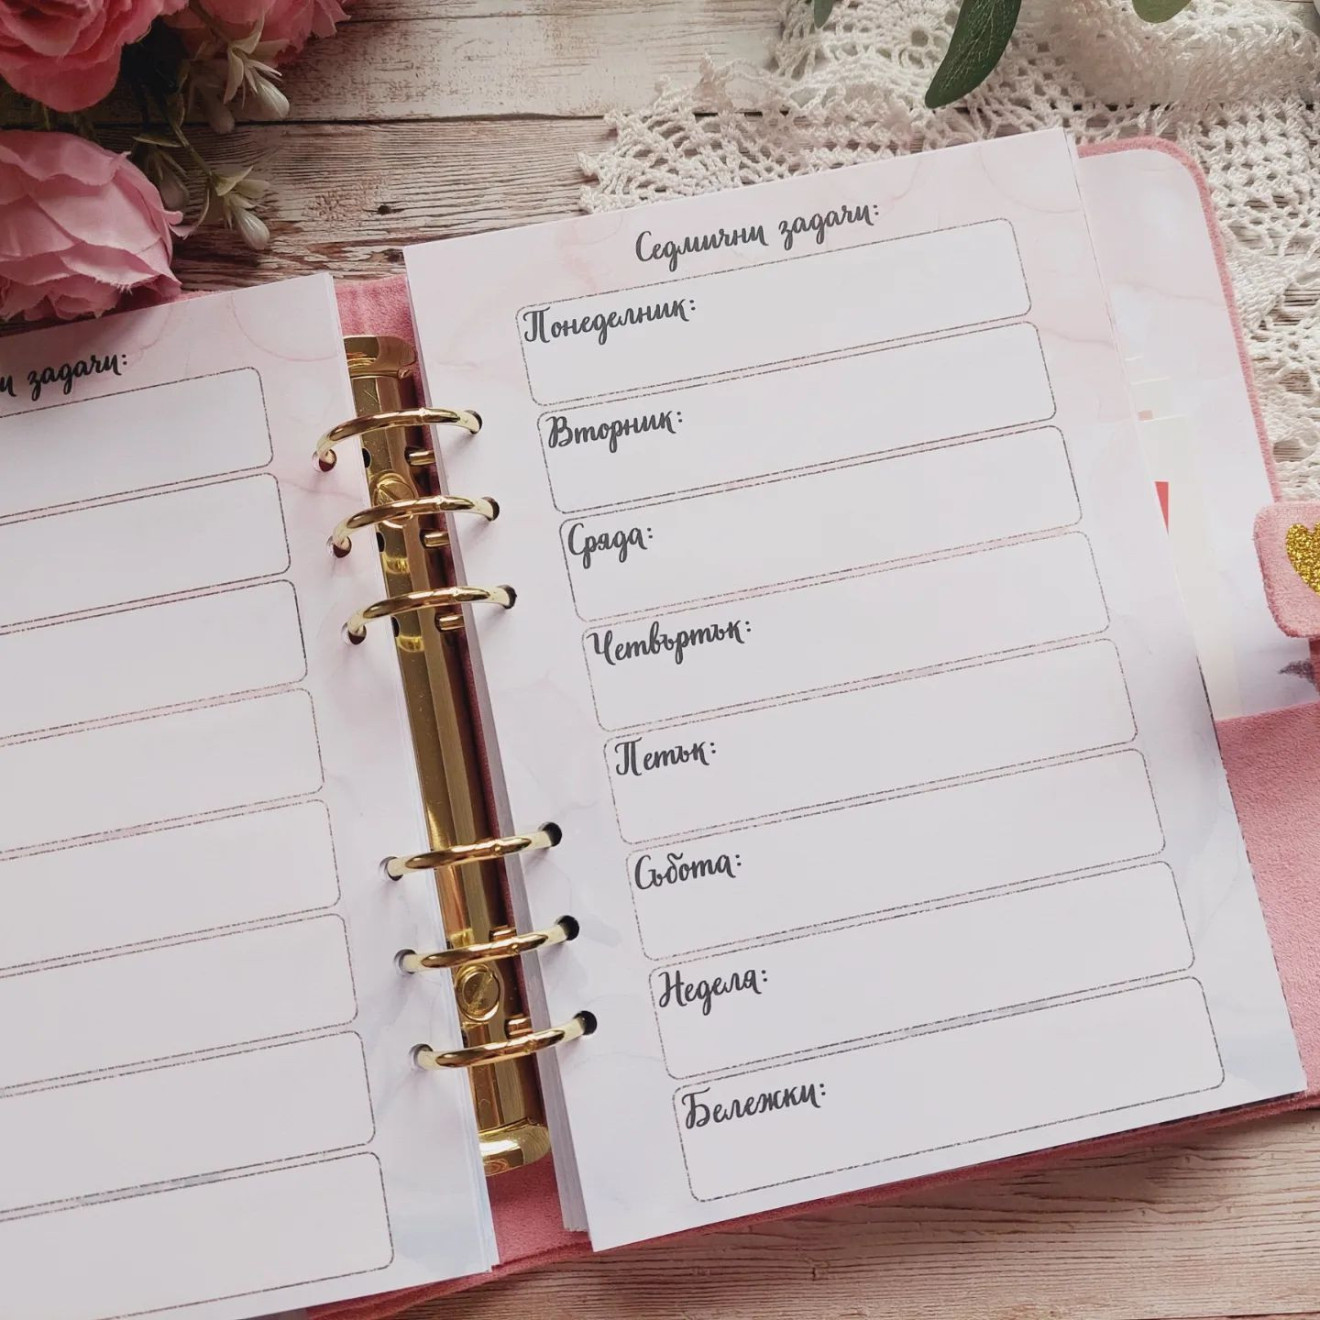 задачи:
Седмични задачи:
Понеделник:
Вторник:
Сряда:
Четвъртък:
Петък:
Събота:
Неделя:
Бележки: